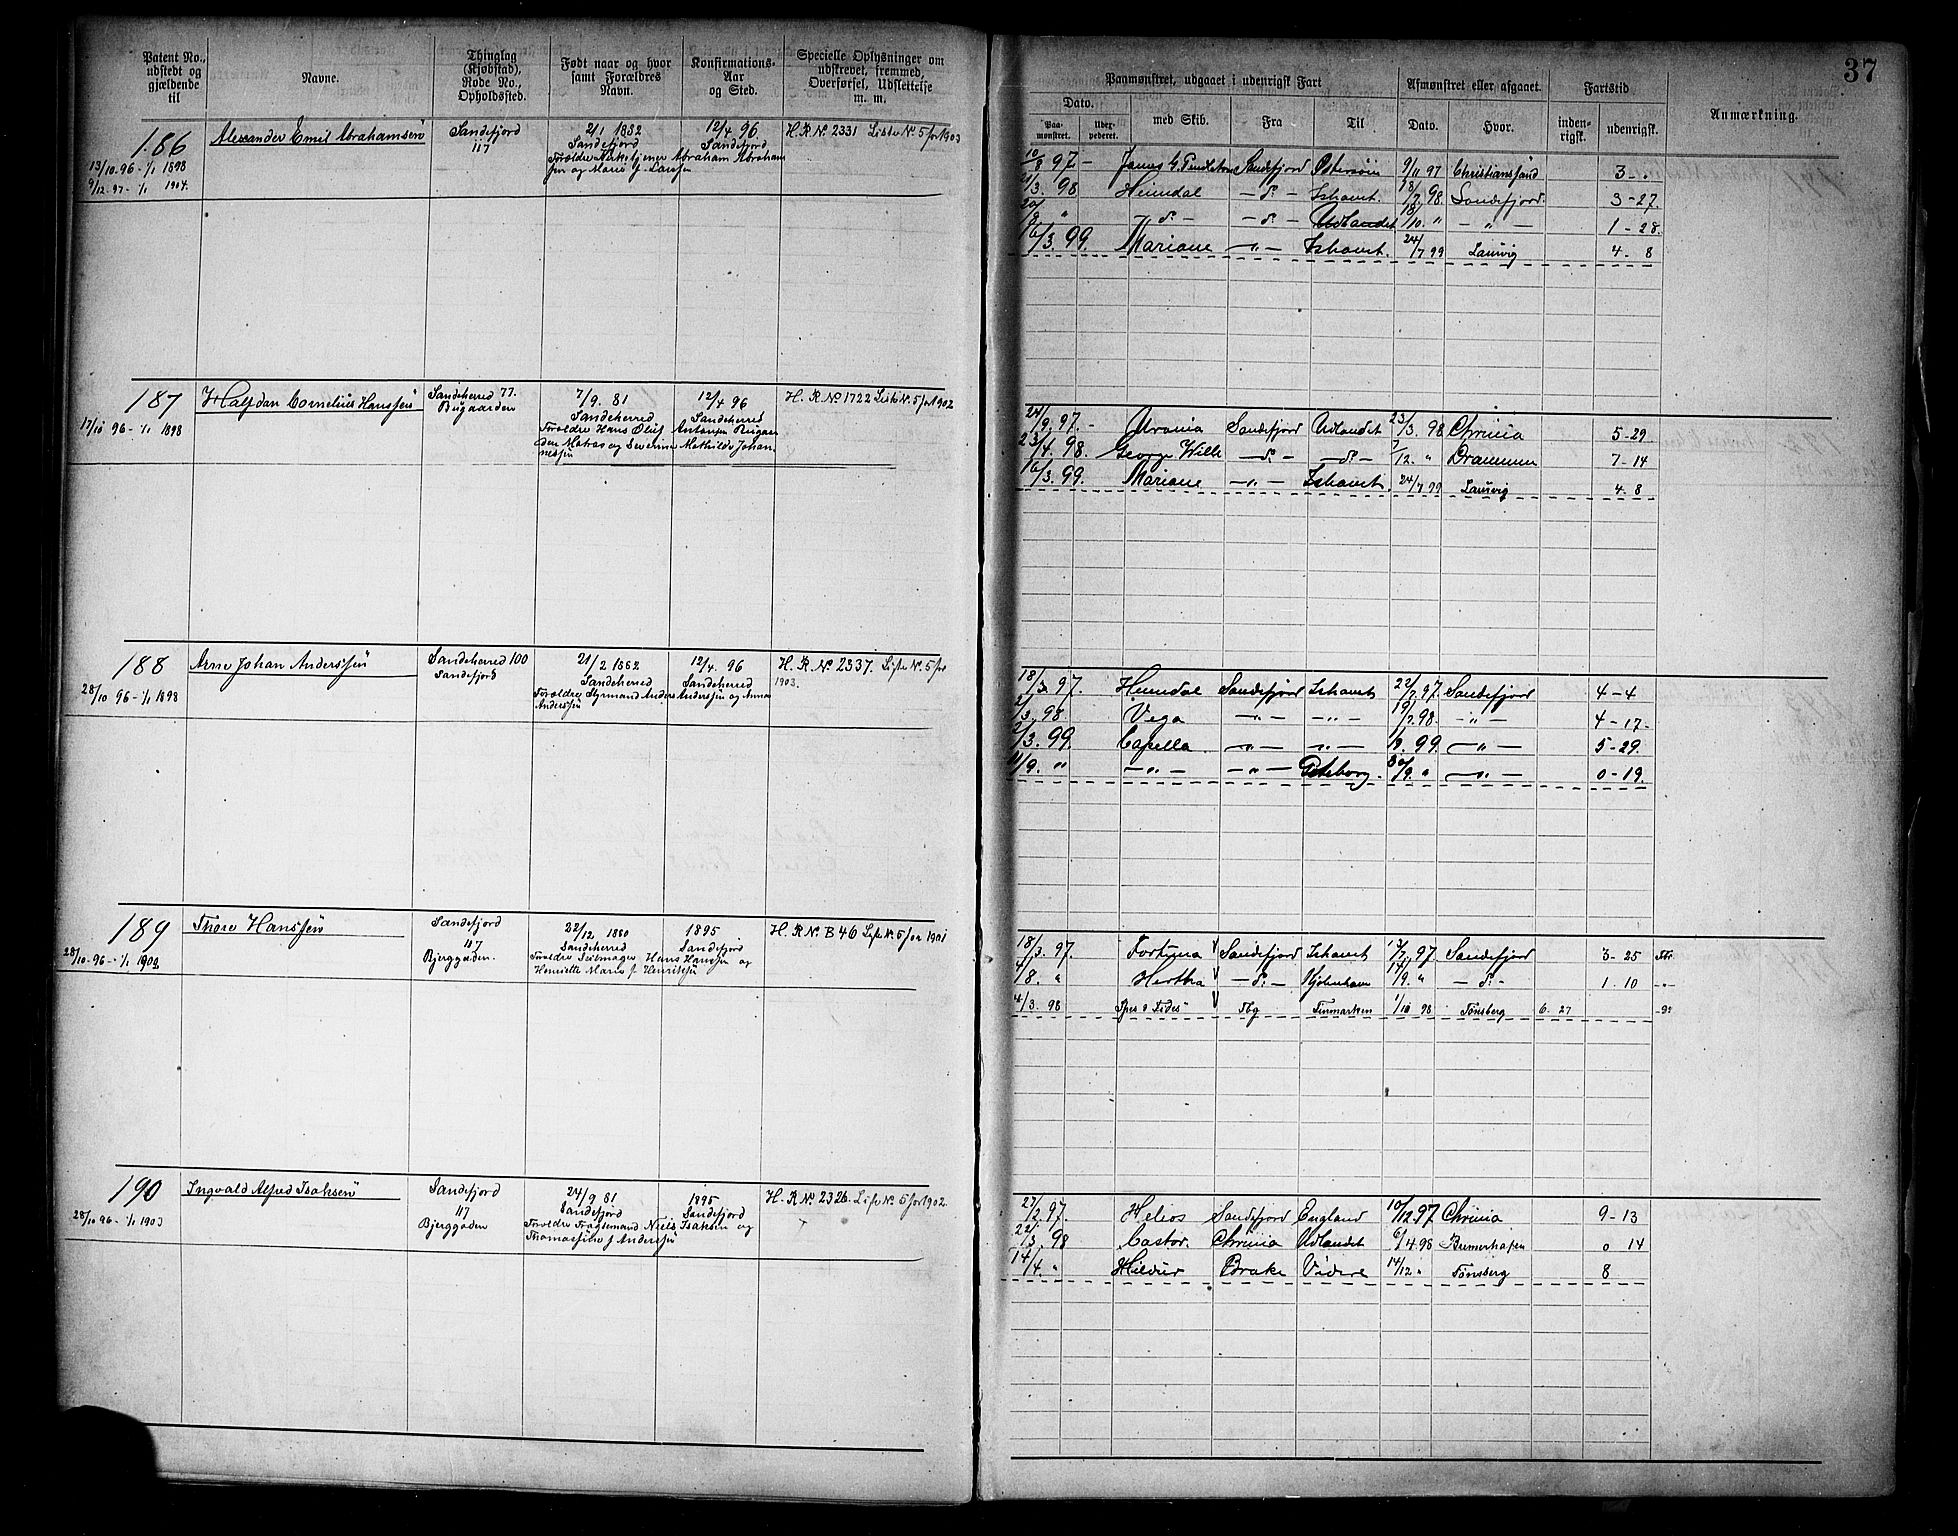 37
Patent No., udstedt og gjældende til
Navne.
Thinglag (Kjøbstad), Rode No., Opholdssted.
Født naar og hvor samt Forældres Navn.
Konfirmations-Aar og Sted.
Specielle Oplysninger om udskrevet, fremmed, Overførsel, Udslettelse m. m.
Paamønstret, udgaaet i udenrigsk Fart
Afmønstret eller afgaaet.
Fartstid
Anmærkning.
Dato.
med Skib.
Fra
Til
Dato.
Hvor.
inden-rigsk.
udenrigsk.
Paa-mønstret.
186
13/10 96 - 1/1 1898
9/12 97 - 1/1 1904.
Alexander Emil Abrahamsen
Sandefjord
117
2/1 1882
Sandefjord
12/4 96
Sandefjord
H. R. No. 2331 Liste No. 5 for 1903
10/8 97 - Sandefjord Østersøen 9/11 97 Christianssand 3 - "
21/3. 98 Heimdal - do - Ishavet. 18/7 98 Sandefjord. 3 - 27.
20/8 " do - - do - Udlandet 18/10. " - " - 1 - 28.
16/3. 99. Mariane - " - Ishavet. 24/7 99 Laurvig 4 - 8
187
17/10 96 - 1/1 1898
Halfdan Cornelius Hanssen
Sandeherred 77.
Bugaarden
7/9. 81
Sandeherred
Forældre Hans Oluf Antonsen Bugaar
den Matros og Severine Mathilde Johan
nessen
12/4 96
Sandeherred
H. R. No. 1722 Liste No. 5 for 1902
24/9. 97. - Urania Sandefjord Udlandet 23/3. 98 Chrinia 5 - 29
23/4. 98. George Wills - do - - do - 7/12. " Drammen 7 - 14
16/3. 99. Mariane - " - Ishavet 24/7 99 Laurvig 4. 8
188
28/10 96 - 1/1 1898
Arne Johan Anderssen
Sandeherred 100
Sandefjord
21/2 1882
Sandeherred
Forældre Styrmand Anders Anderssen og Anna
Anderssen
12/4. 96
Sandeherred
H. R. No. 2337. Liste No. 5 for
1903.
18/3. 97. Heimdal Sandefjord Ishavet 22/7. 97. Sandefjord 4 - 4
2/3. 98 Vega - " - - " - 19/7. 98. - " - 4 - 17 -
2/3. 99. Capella. - " - - " - 99. - " - 5 - 29.
11/9. " - " - - " - Göteborg. 30/9. " - " - 0 - 19.
189
28/10. 96 - 1/1 1902
Thore Hanssen
Sandefjord
117
Bjerggaden.
22/12 1880
Sandeherred
Forældre Seilmager Hans Hanssen og
Henriette Marie f. Henriksen
1895
Sandefjord
H. R. No. B 46 Liste No. 5 for 1901
18/3. 97. Fortuna Sandefjord Ishavet 97 Sandefjord 3 - 25
4/8. " Hertha - do - Kjøbenhavn 14/9. " - do - 1. 10
98 Spes & Fides Tbg Finmarken 1/10 98 Tønsberg 6. 27
190
28/10 96 - 1/1 1903
Ingvald Alfred Isaksen
Sandefjord
117
Bjerggaden
24/9 81
Sandefjord
Forældre Fragtemand Niels Isaksen og
Thomassine f. Anderssen
1895
Sandefjord
H. R. No. 2326. Liste No. 5 for 1902.
23/2. 97. Helios Sandefjord England 10/12 97 Chrinia 9 - 13
22/3. 98 Castor. Chrinia Udlandet 6/4. 98 Bremerhafen 0 14
14/4. " Hildur Brake Videre 14/12 " Tønsberg 8